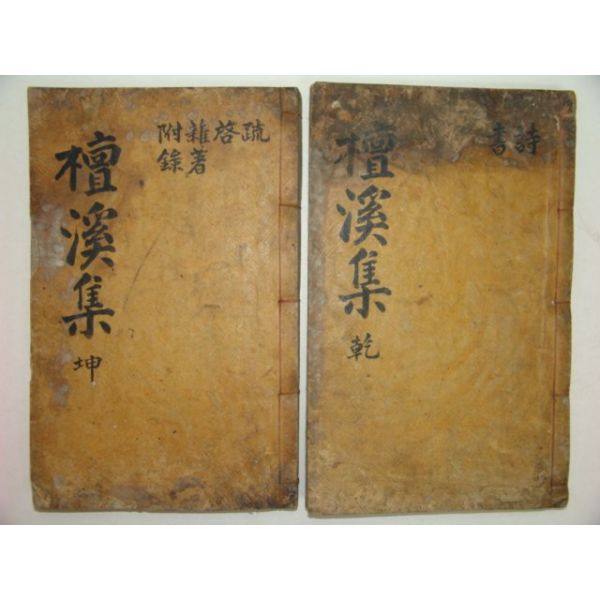 檀溪集
乾
詩
書
檀溪集
坤
疏
啓
雜著
附錄